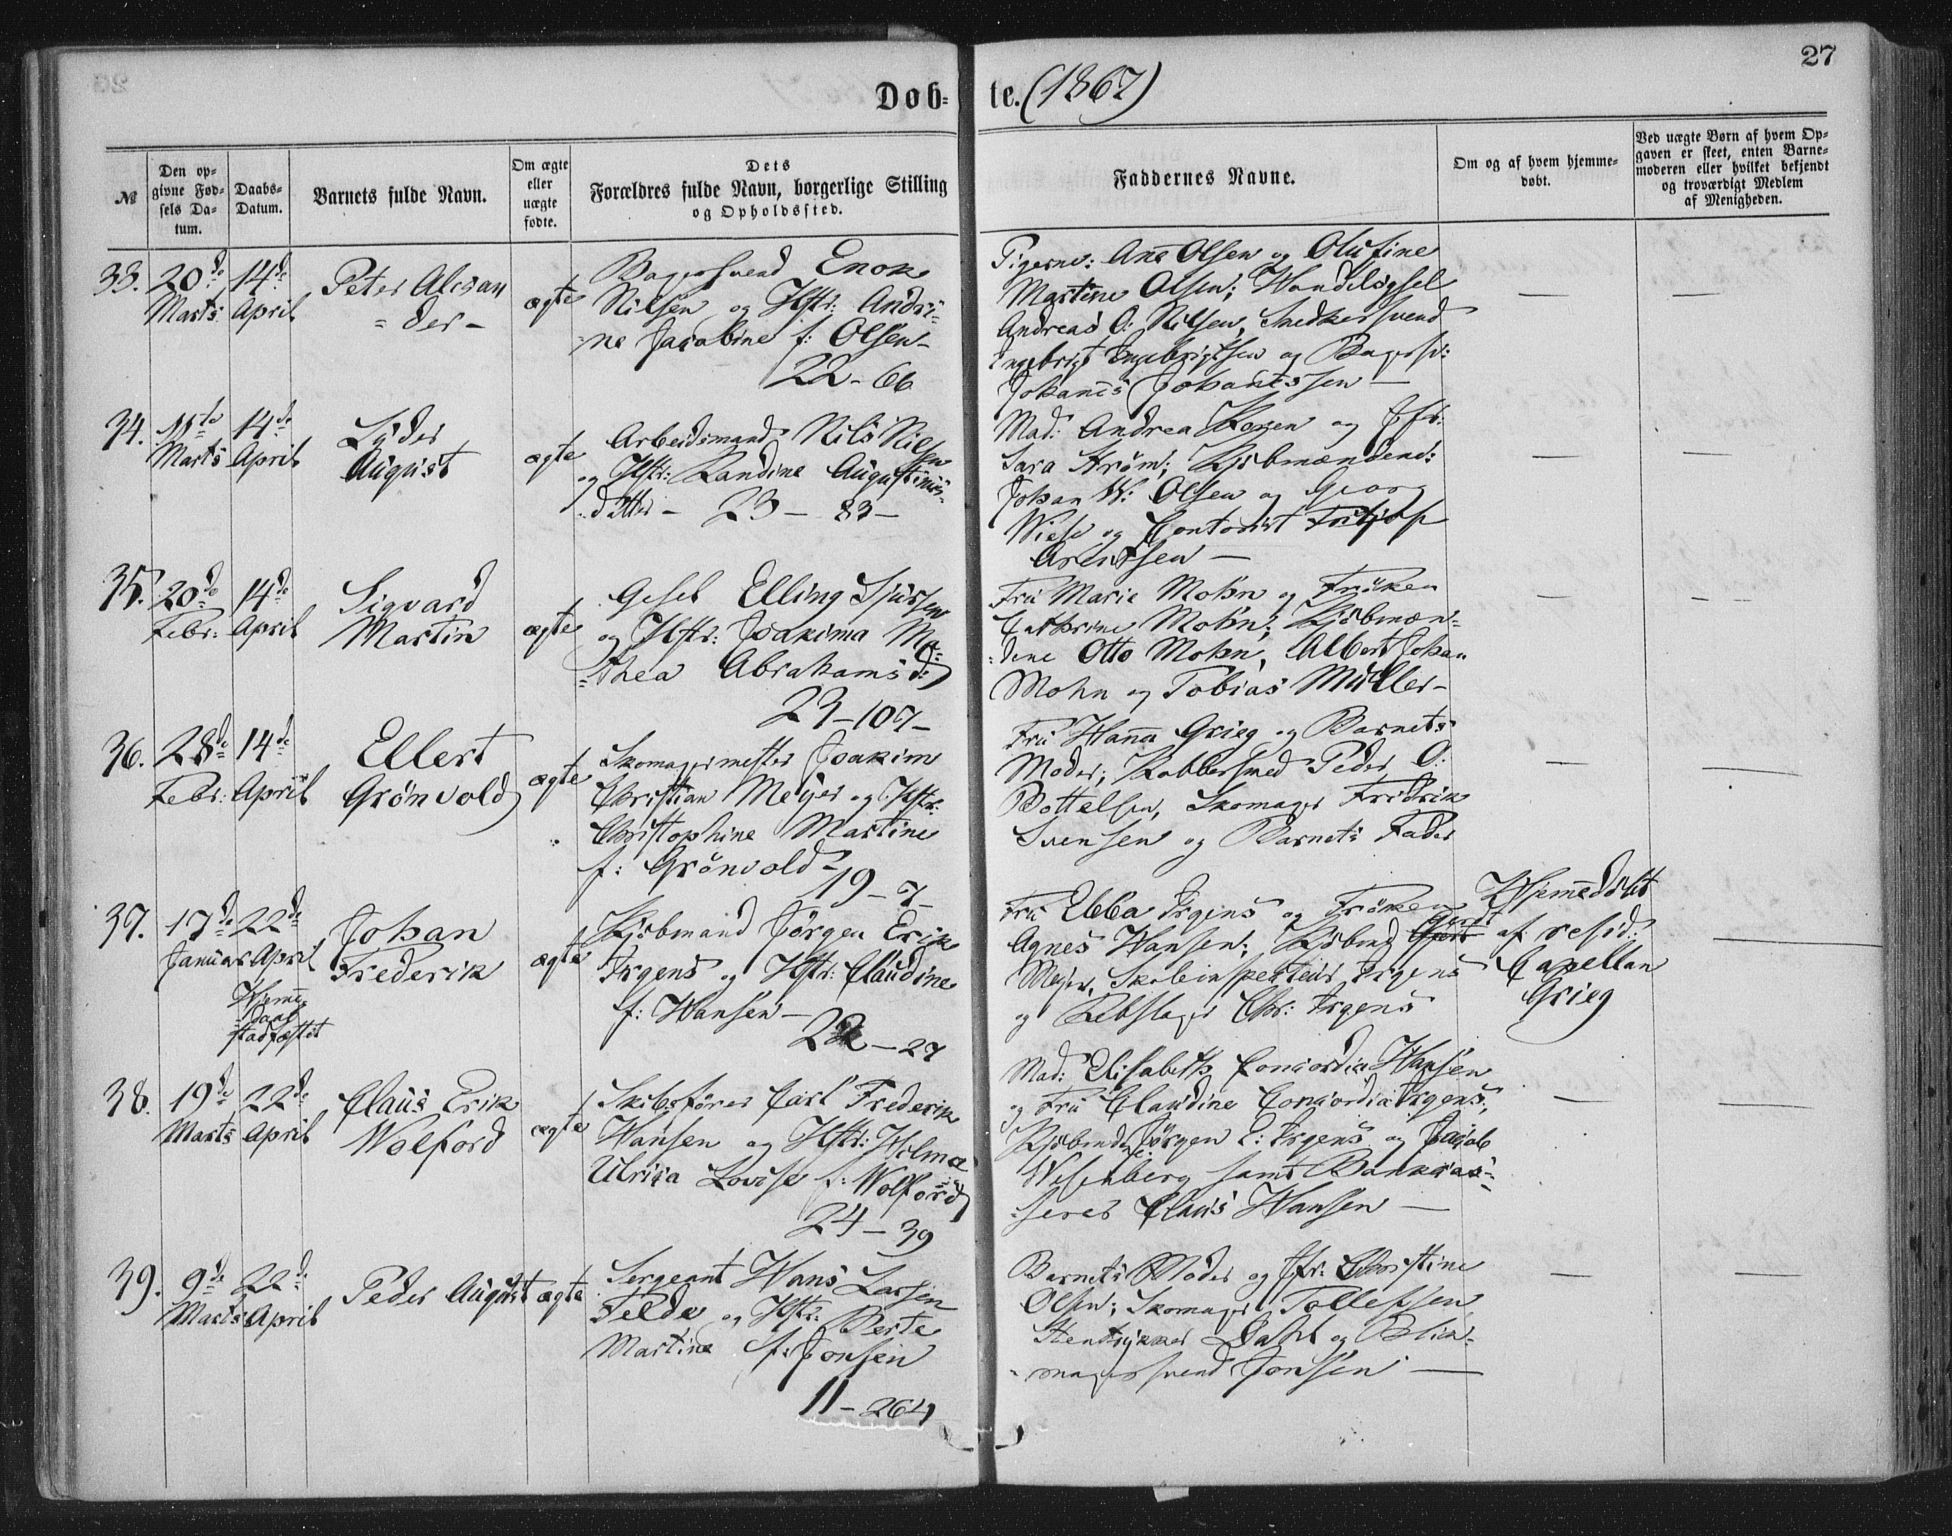 27
Døb- te. (1867)
№
Den op-
givne Fød-
sels Da-
tum.
Daabs-
Datum.
Barnets fulde Navn.
Om ægte
eller
uægte
fødte.
Dets
Forældres fulde Navn, borgerlige Stilling
og Opholdssted.
Faddernes Navne.
Om og af hvem hjemme-
døbt.
Ved uægte Børn af hvem Op-
gaven er skeet, enten Barne-
moderen eller hvilket bekjendt
og troværdigt Medlem
af Menigheden.
33. 20de Marts 14de April
Peter Alexan
- der -
ægte
Bagersvend Enok
Nilsen og Hstr: Andri-
ne Jacobine f: Olsen -
22 - 66
Pigerne: Ane Olsen og Olufine
Martine Olsen; Handelsgsel
Andreas O: Nilsen, Snedkersvend
Engebrigt Engebrigtsen og Bagersv:
Johanes Johanessen -
34. 11te Marts 14de April
Lyder
August
ægte
Arbeidsmand Nils Nilsen
og Hstr: Randine Augustinus-
datter - 23 - 83 -
Mad: Andrea Kroyen og Jfr:
Sara Strøm; Kjøbmændene:
Johan W: Olsen og Georg
Wiese og Contorist Fritjof
Arentsen -
35. 20de Febr: 14de April
Sigvard
Martin
ægte
Gesel Elling Sjursen
og Hstr: Joakima Ma-
thea Abrahamsd:
23 - 107 -
Fru Marie Mohn og Frøken
Cathrine Mohn; Kjøbmæn-
dene Otto Mohn, Albert Johan
Mohn og Tobias Müller -
36. 28de Febr: 14de April
Ellert
Grønvold
ægte
Skomagermester Joakim
Christian Meyer og Hstr:
Christophine Martine
f: Grønvold -
19 - 7 -
Fru Hanna Grieg og Barnets
Moder; Kobbersmed Peder O:
Bottelsen, Skomager Fredrik
Svensen og Barnets Fader
37. 17de Januar 22de April
Hjemme-
daab
stadfæstet
Johan
Frederik
ægte
Kjøbmand Jørgen Erik
Irgens og Hstr: Claudine
f: Hansen -
22 - 27
Fru Ebba Irgens og Frøken
Agnes Hansen; Kjøbmd Gjert
Meyer, Skoleinspecteur Irgens
og Rebslager Chr: Irgens
Hjemmedøbt
af resid:
Capellan
Grieg
38. 19de Marts 22de April
Claus Erik
Wolford
ægte
Skibsfører Carl Frederik
Hansen og Hstr: Hilma
Ulrika Lovise f: Wolford
24 - 39
Mad: Elisabeth Concordia Hansen
og Fru Claudine Concordia Irgens,
Kjøbmdne: Jørgen E: Irgens og Jacob
Wesenberg samt Bankkas-
serer Claus Hansen -
39. 9de Marts 22de April
Peder August
ægte
Sergeant Hans Larsen
Felde og Hstr: Berte
Martine f: Jonsen
11 - 264
Barnets Moder og Jfr: Christine
Olsen; Skomager Tollefsen,
Stentrykker Dahl og Blik-
magersvend Jonsen -